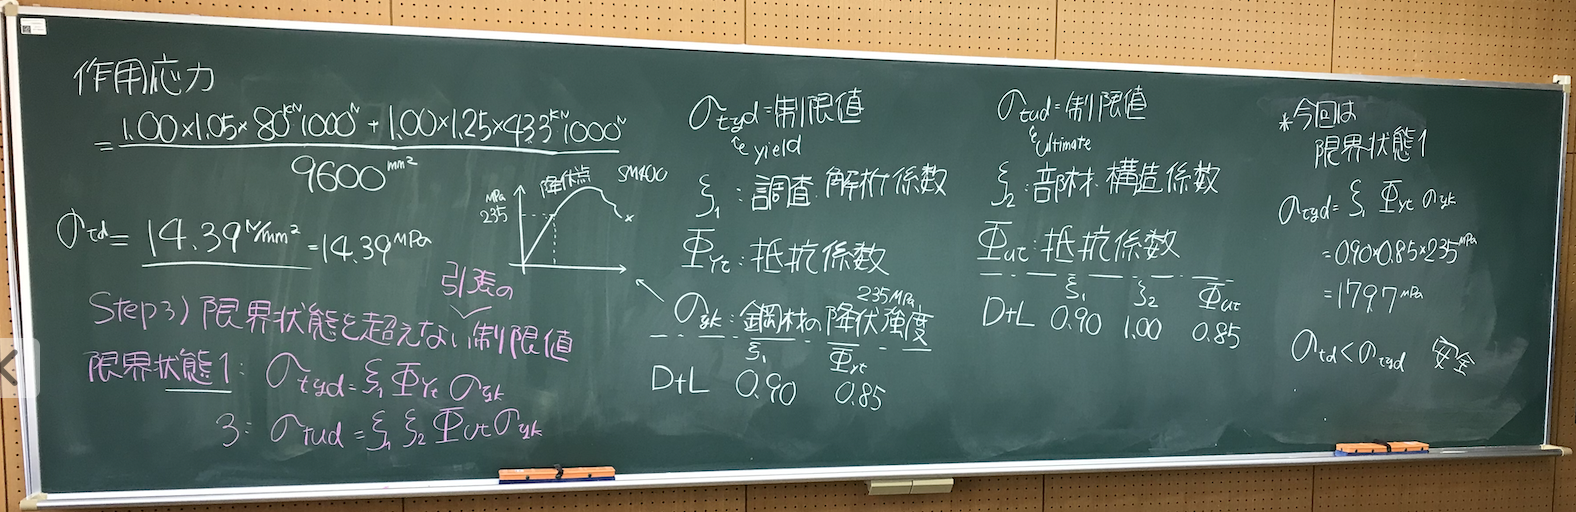 作用応力
= 1.00×1.05×80kN 1000N + 1.00×1.25×43.3kN 1000N
9600mm²
σtd = 14.39 N/mm² = 14.39 MPa
MPa
235
降伏点
SM400
引張の
Step3) 限界状態を超えない制限値
限界状態1: σtyd = ξ₁ΦYt σyk
3: σtud = ξ₁ξ₂ΦUt σyk
σtyd = 制限値
yield
ξ₁: 調査・解析係数
ΦYt: 抵抗係数
235MPa
σyk: 鋼材の降伏強度
ξ₁ ΦYt
D+L 0.90 0.85
σtud = 制限値
Ultimate
ξ₂: 部材・構造係数
ΦUt: 抵抗係数
ξ₁ ξ₂ ΦUt
D+L 0.90 1.00 0.85
*今回は
限界状態1
σtyd = ξ₁ ΦYt σyk
= 0.90×0.85×235MPa
= 179.7MPa
σtd < σtyd 安全